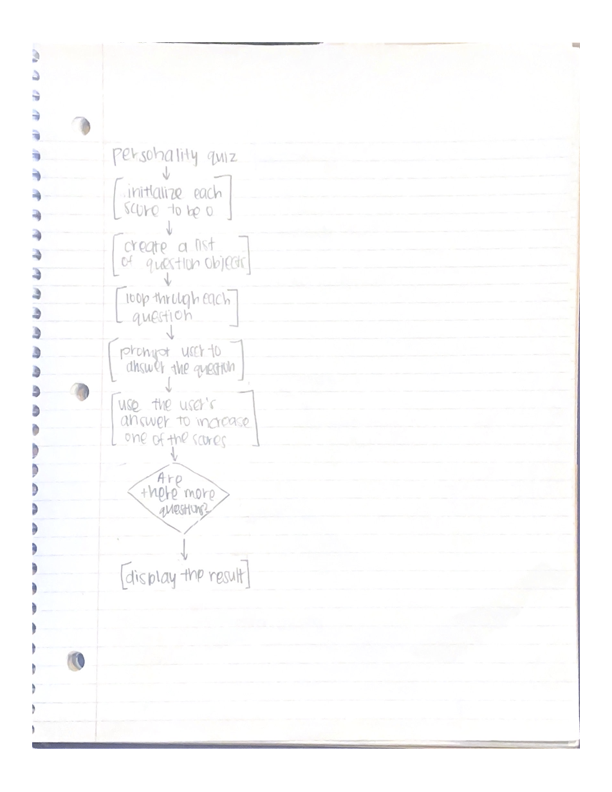 personality quiz
initialize each
score to be 0
create a list
of question objects
loop through each
question
prompt user to
answer the question
use the user's
answer to increase
one of the scores
Are
there more
questions?
display the result